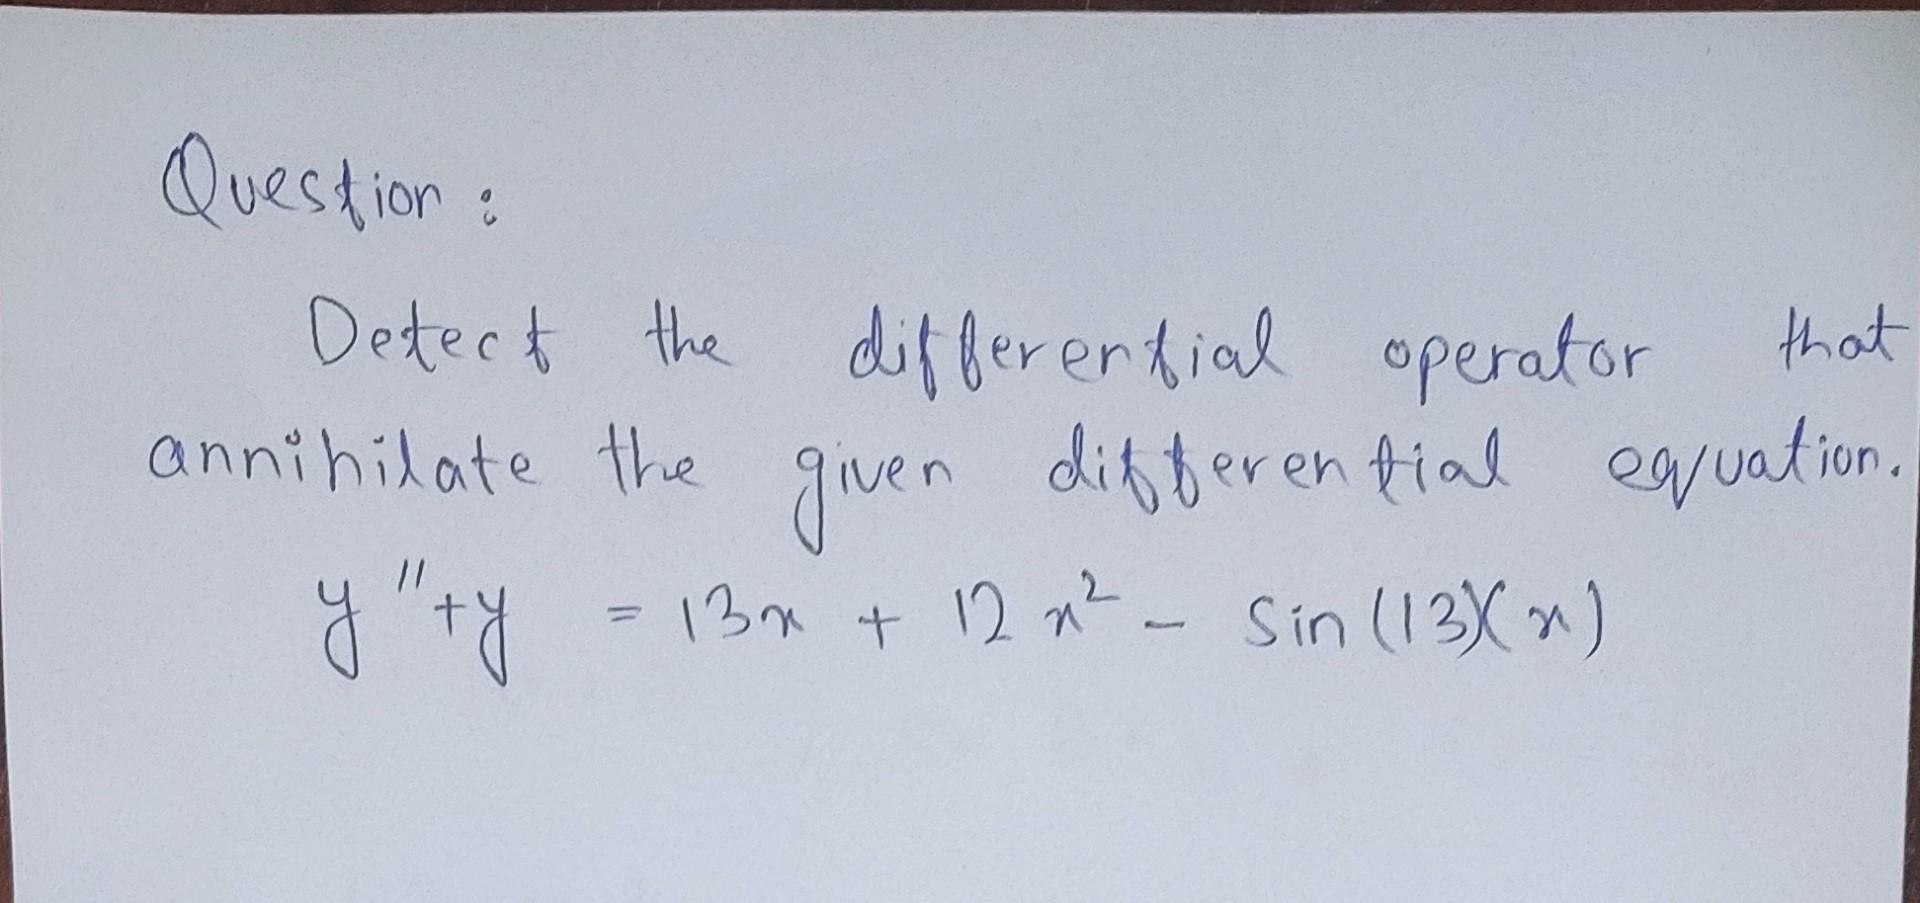 Question:
Detect the differential operator that
annihilate the given differential equation.
y" + y = 13x + 12x² - sin(13)(x)